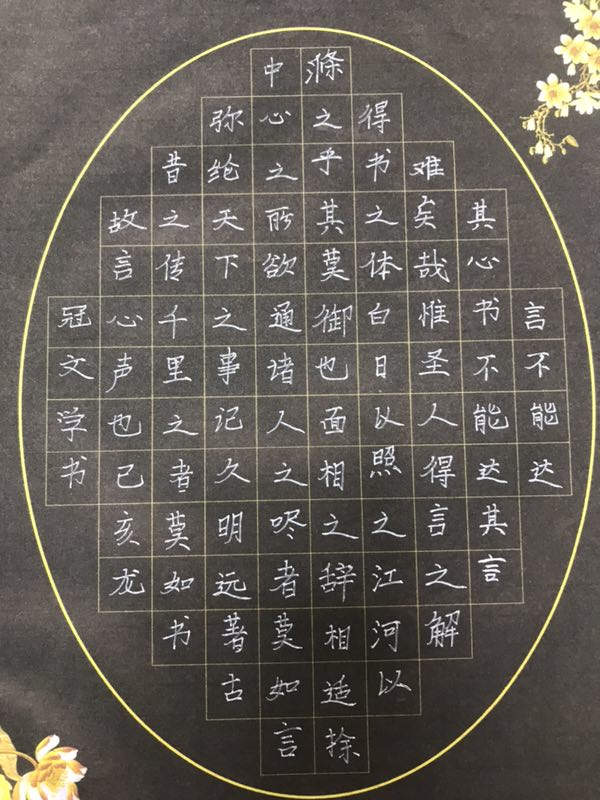 言不能达
其心书不能达其言
难矣哉惟圣人得言之解
得书之体白日以照之江河以
滌之乎其莫御也面相之辞相适捈
中心之所欲通诸人之者莫如言
弥纶天下之事记久明远著古
昔之传千里之者莫如书
故言心声也己亥龙
冠文学书